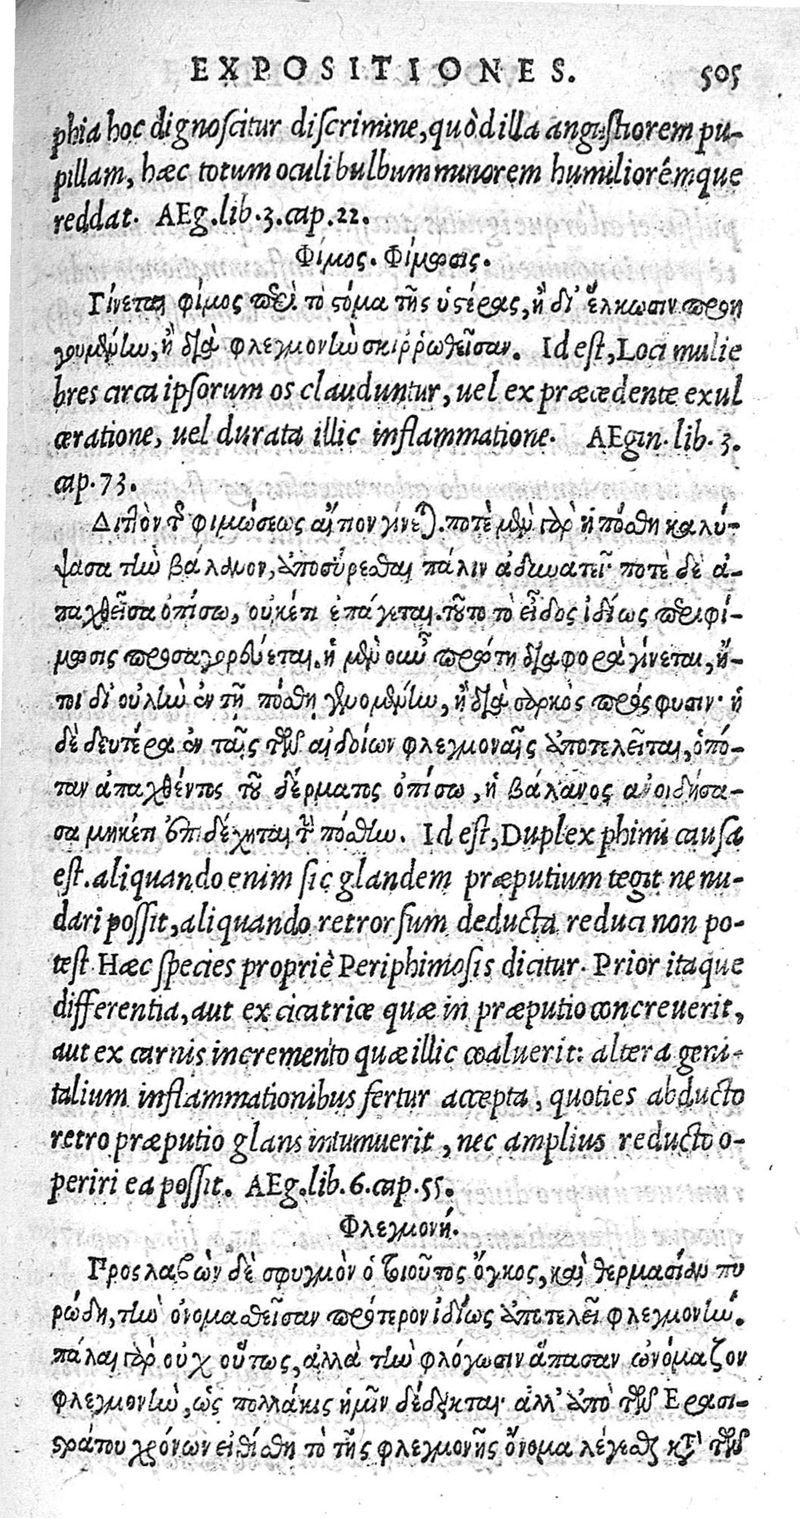 EXPOSITIONES. 505
phia hoc dignoscitur discrimine, quòd illa angustiorem pu-
pillam, hæc totum oculi bulbum minorem humiliorémque
reddat. AEg. lib. 3. cap. 22.
Φίμος. Φίμωσις.
Γίνεται φίμος περὶ τὸ στόμα τῆς ὑστέρας, ἢ δι' ἕλκωσιν προη
γουμένην, ἢ διὰ φλεγμονὴν σκιῤῥωθεῖσαν. Id est, Loci mulie
bres circa ipsorum os clauduntur, uel ex præcedente exul
ceratione, uel durata illic inflammatione. AEgin. lib. 3.
cap. 73.
Διττὸν τ φιμώσεως αἴτιον γίνεται. ποτὲ μὲν γὰρ ἡ πόσθη καλύ-
ψασα τὴν βάλανον, ἀποσύρεσθαι πάλιν ἀδυνατεῖ· ποτὲ δὲ ἀ-
παχθεῖσα ὀπίσω, οὐκέτι ἐπάγεται. τοῦτο τὸ εἶδος ἰδίως περιφί-
μωσις προσαγορεύεται. ἡ μὲν οὖν πρώτη διαφορὰ γίνεται, ἤ-
τοι δι' οὐλὴν ἐν τῇ πόσθῃ γενομένην, ἢ διὰ σαρκὸς πρόσφυσιν· ἡ
δὲ δευτέρα ἐν ταῖς τῶν αἰδοίων φλεγμοναῖς ἀποτελεῖται, ὁπό-
ταν ἀπαχθέντος τοῦ δέρματος ὀπίσω, ἡ βάλανος ἀνοιδήσα-
σα μηκέτι ἐπιδέχηται τὴν πόσθην. Id est, Duplex phimi causa
est. aliquando enim sic glandem præputium tegit ne nu-
dari possit, aliquando retrorsum deducta reduci non po-
test. Hæc species propriè Periphimosis dicitur. Prior itaque
differentia, aut ex cicatrice quæ in præputio concreuerit,
aut ex carnis incremento quæ illic coaluerit: altera geni-
talium inflammationibus fertur accepta, quoties abducto
retro præputio glans intumuerit, nec amplius reducto o-
periri ea possit. AEg. lib. 6. cap. 55.
Φλεγμονή.
Προσλαβὼν δὲ σφυγμὸν ὁ τοιοῦτος ὄγκος, καὶ θερμασίαν πυ
ρώδη, τὴν ὀνομασθεῖσαν πρότερον ἰδίως ἀποτελεῖ φλεγμονήν.
πάλαι γὰρ οὐχ οὕτως, ἀλλὰ τὴν φλόγωσιν ἅπασαν ὠνόμαζον
φλεγμονὴν, ὡς πολλάκις ἡμῖν δέδεικται· ἀλλ' ἀπὸ τῶν Ερασι-
στράτου χρόνων εἰθίσθη τὸ τῆς φλεγμονῆς ὄνομα λέγεσθαι κατὰ τῶν